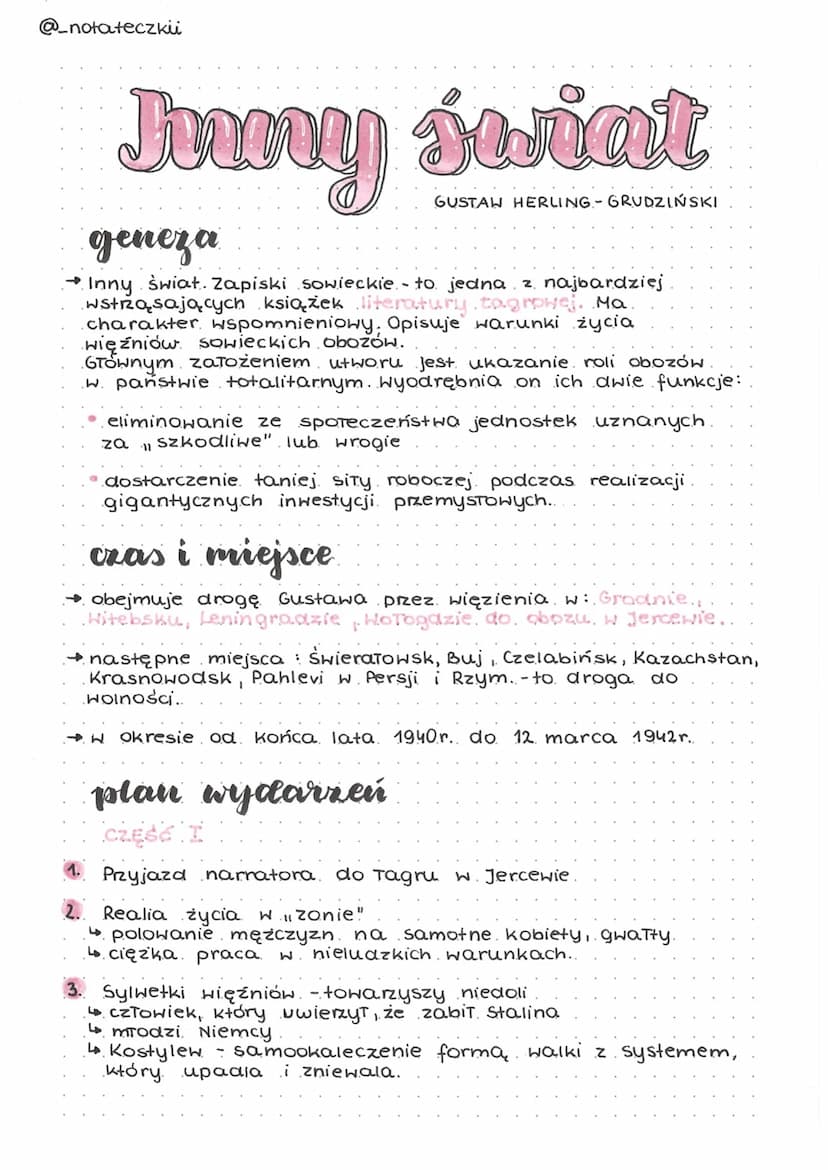 @_notateczkii
Inny świat
GUSTAW HERLING-GRUDZIŃSKI
geneza
→ Inny świat. Zapiski sowieckie - to jedna z najbardziej
wstrząsających książek literatury łagrowej. Ma
charakter wspomnieniowy. Opisuje warunki życia
więźniów sowieckich obozów.
Głównym założeniem utworu jest ukazanie roli obozów
w państwie totalitarnym. Wyodrębnia on ich dwie funkcje:
• eliminowanie ze społeczeństwa jednostek uznanych
za „szkodliwe" lub wrogie
• dostarczenie taniej siły roboczej podczas realizacji
gigantycznych inwestycji przemysłowych.
czas i miejsce
→ obejmuje drogę Gustawa przez więzienia w: Grodnie,
Witebsku, Leningradzie, Wołogdzie do obozu w Jercewie.
→ następne miejsca: Świerałowsk, Buj, Czelabińsk, Kazachstan,
Krasnowodsk, Pahlevi w Persji i Rzym. - to droga do
wolności.
→ w okresie od końca lata 1940r. do 12 marca 1942r.
plan wydarzeń
CZĘŚĆ I
1. Przyjazd narratora do łagru w Jercewie
2. Realia życia w „zonie"
↳ polowanie mężczyzn na samotne kobiety, gwałty
↳ ciężka praca w nieludzkich warunkach.
3. Sylwetki więźniów - towarzyszy niedoli
↳ człowiek, który uwierzył, że zabił Stalina
↳ młodzi Niemcy
↳ Kostylew - samookaleczenie formą walki z systemem,
który upadla i zniewala.